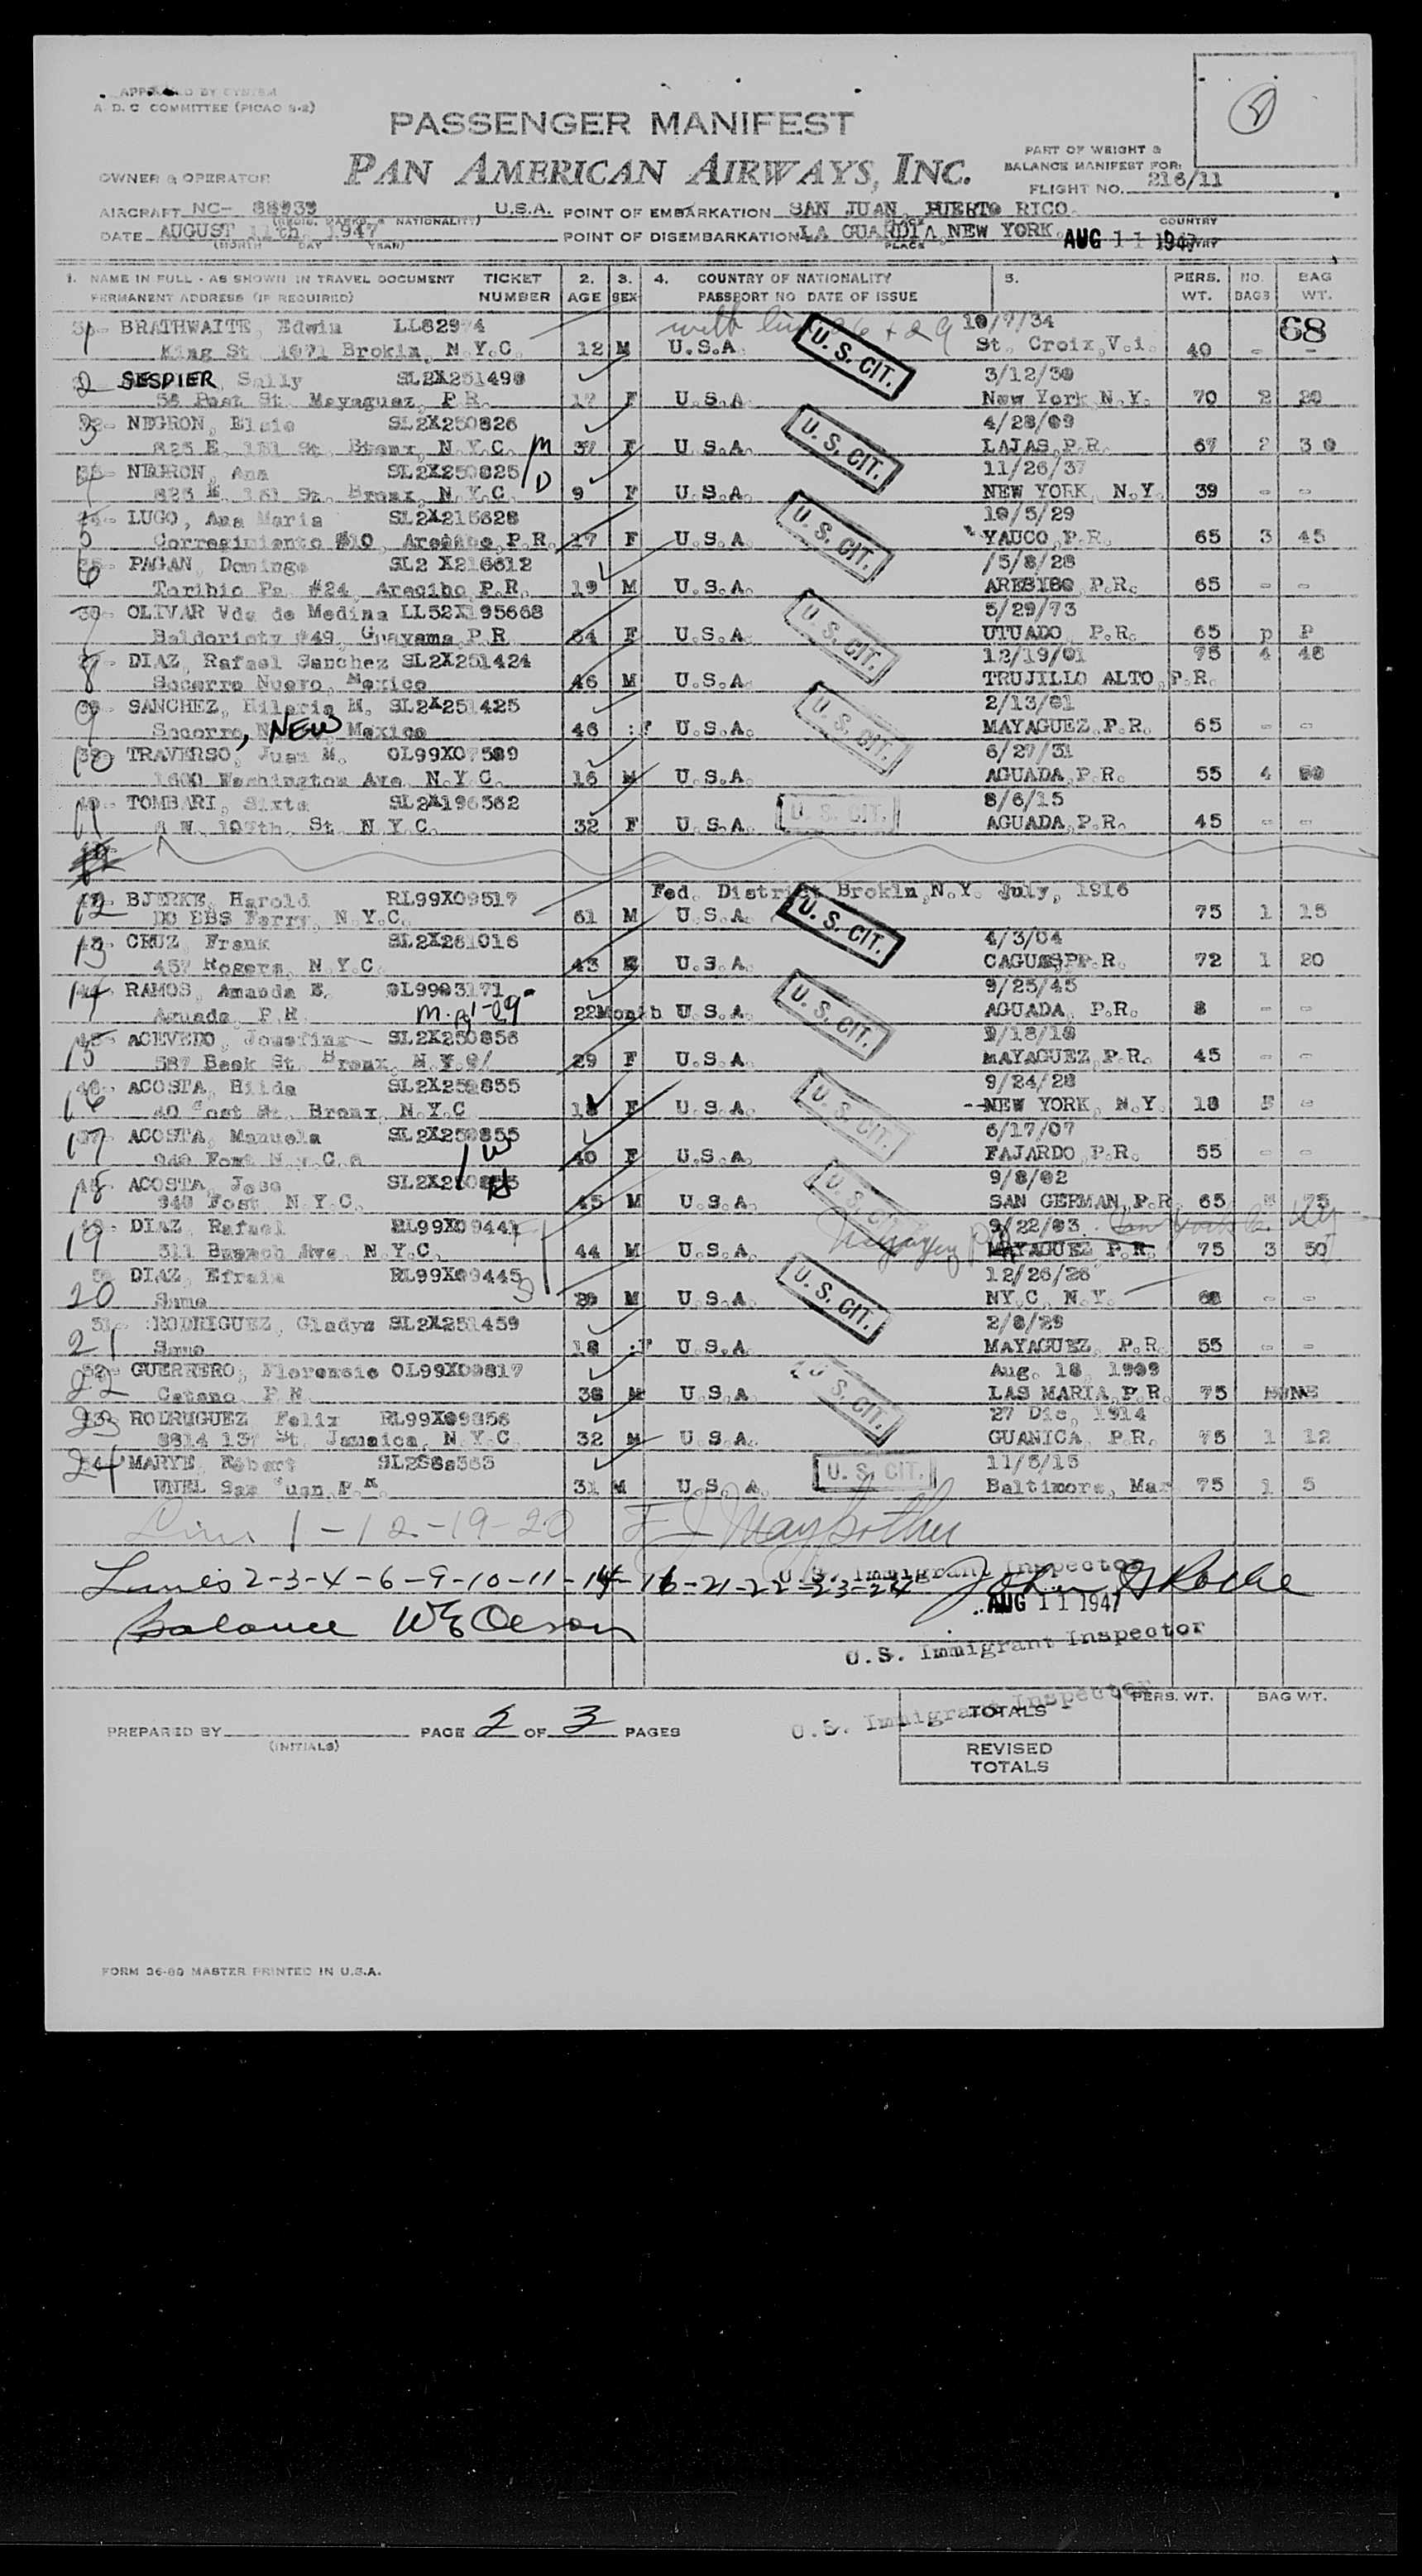 APPROVED BY SYSTEM
A. D. C COMMITTEE (PICAO S-2)
PASSENGER MANIFEST
PAN AMERICAN AIRWAYS, INC.
PART OF WEIGHT &
BALANCE MANIFEST FOR:
OWNER & OPERATOR
FLIGHT NO. 216/11
AIRCRAFT NC- U.S.A. POINT OF EMBARKATION SAN JUAN, PUERTO RICO.
DATE AUGUST 11th, 1947 POINT OF DISEMBARKATION LA GUARDIA, NEW YORK. AUG 11 1947
1. NAME IN FULL - AS SHOWN IN TRAVEL DOCUMENT TICKET 2. 3. 4. COUNTRY OF NATIONALITY 5. PERS. NO. BAG
PERMANENT ADDRESS (IF REQUIRED) NUMBER AGE SEX PASSPORT NO DATE OF ISSUE WT. BAGS WT.
68
1 BRATHWAITE, Edwin 10/7/34
King St 1071 Brokln, N.Y.C. 12 M U.S.A. U. S. CIT. St. Croix, V.i. 40 - -
2 SESPIER, Sally 3/12/30
Post St. Mayaguez, P.R. 17 F U.S.A. New York, N.Y. 70 2 20
3 NEGRON, Elsie SL2X250826 4/28/09
825 E. 151 St. Bronx, N.Y.C. M 37 F U.S.A. U. S. CIT. LAJAS, P.R. 67 2 30
4 NEGRON, Ana SL2X250825 11/26/37
825 E 151 St. Bronx, N.Y.C. D 9 F U.S.A. NEW YORK, N.Y. 39 - -
5 LUGO, Ana Maria SL2X215628 10/5/29
Corregimiento #10, Arecibo, P.R. 17 F U.S.A. U. S. CIT. YAUCO, P.R. 65 3 45
6 PAGAN, Domingo SL2 X216612 /5/8/28
Toribio Pa #24, Arecibo P.R. 19 M U.S.A. P.R. 65 - -
7 OLIVAR Vda de Medina LL52X195668 5/29/73
Baldorioty #49, Guayama, P.R. F U.S.A. U. S. CIT. UTUADO, P.R. 65 p P
8 DIAZ, Rafael Sanchez SL2X251424 12/19/01 75 4 48
Socorro Nuevo, Mexico 46 M U.S.A. TRUJILLO ALTO, P.R.
9 SANCHEZ, Hilaria M. SL2X251425 2/13/01
Socorro, NEW Mexico 46 :F U.S.A. U. S. CIT. MAYAGUEZ, P.R. 65 - -
10 TRAVERSO, Juan M. OL99X07589 6/27/31
1600 Washington Ave. N.Y.C. 16 M U.S.A. AGUADA, P.R. 55 4
11 TOMBARI, Sixta SL2X196562 8/6/15
St. N.Y.C. 32 F U.S.A. U. S. CIT. AGUADA, P.R. 45 - -
Fed. District Brokln, N.Y. July, 1916
12 BJERKE, Harold RL99X09517
DO BBS Ferry, N.Y.C. 61 M U.S.A. U. S. CIT. 75 1 15
13 CRUZ, Frank SL2X261016 4/3/04
457 Rogers, N.Y.C. 43 U.S.A. 72 1 20
14 RAMOS, Amanda E. 9/25/45
Aguada, P.R. 22Month U.S.A. U. S. CIT. AGUADA, P.R. 8 - -
15 ACEVEDO, Josefina SL2X250856
587 Beck St. Bronx, N.Y.C/ 29 F U.S.A. MAYAGUEZ, P.R. 45 - -
16 ACOSTA, Hilda 9/24/28
St. Bronx, N.Y.C 18 F U.S.A. U. S. CIT. --NEW YORK, N.Y. 18 F -
17 ACOSTA, Manuela 6/17/07
W 40 F U.S.A. FAJARDO, P.R. 55 - -
18 ACOSTA, Jose H 9/8/02
940 Fost, N.Y.C. 45 M U.S.A. U. S. CIT. SAN GERMAN, P.R. 65 75
19 DIAZ, Rafael RL99X09441 F 9/22/03
311 Ave, N.Y.C. 44 M U.S.A. MAYAGUEZ P.R. 75 3 50
20 DIAZ, Efrain RL99X09445 S 12/26/26
Same M U.S.A. U. S. CIT. NY.C. N.Y. - -
21 :RODRIGUEZ, Gladys SL2X251459
Same 18 :F U.S.A. MAYAGUEZ, P.R. 55 - -
22 GUERRERO, Florencio OL99X09817 Aug. 18, 1909
Catano, P.R. 38 M U.S.A. U. S. CIT. LAS MARIA, P.R. 75 NONE
23 RODRUGUEZ Felix RL99X09856 27 Dic, 1914
8814 137 St. Jamaica, N.Y.C. 32 M U.S.A. GUANICA, P.R. 75 1 12
24 MARYE, Robert 11/5/15
San Juan, P.R. 31 M U.S.A. U. S. CIT. Baltimore, Mar 75 1 5
Line 1-12-19-20
U.S. Immigrant Inspector
Lines 2-3-4-6-9-10-11-14-16-21-22-23-24 John Roche
AUG 11 1947
Balance
U.S. Immigrant Inspector
U.S. Immigrant Inspector
PREPARED BY (INITIALS) PAGE 2 OF 3 PAGES
TOTALS PERS. WT. BAG WT.
REVISED TOTALS
FORM 36-80 MASTER PRINTED IN U.S.A.